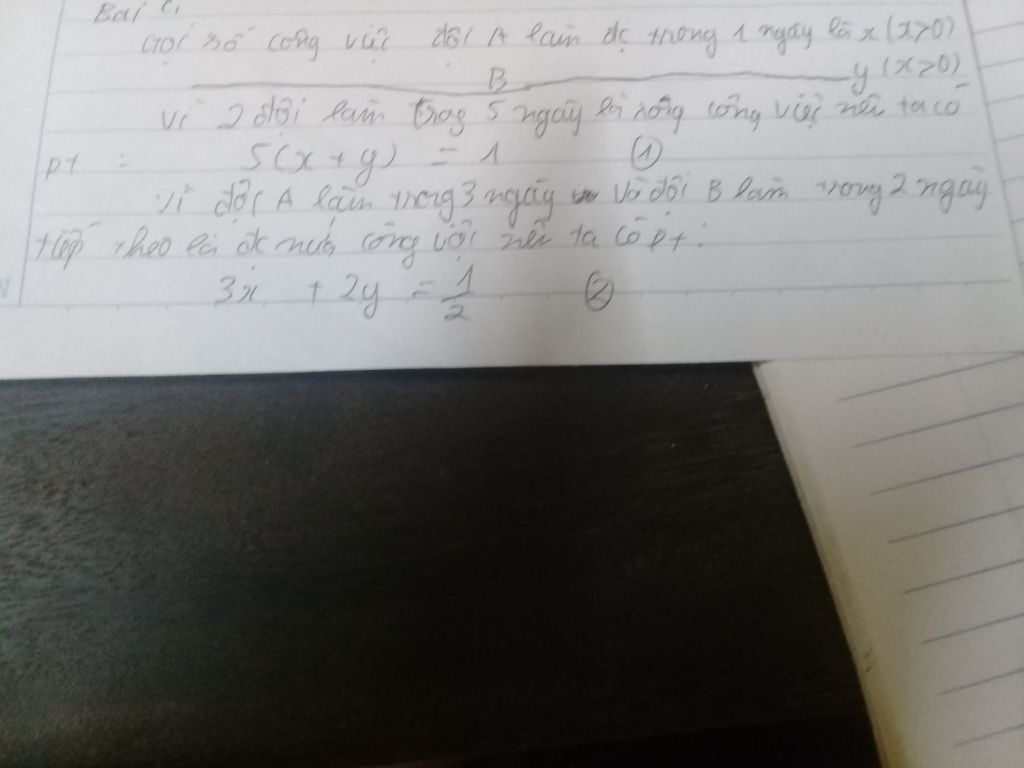 Bài
Gọi số công việc đội A làm đc trong 1 ngày là x (x>0)
B y (x>0)
Vì 2 đội làm trog 5 ngày là xong công việc nên ta có
pt : 5(x + y) = 1 (1)
Vì đội A làm trong 3 ngày và đội B làm trong 2 ngày
tiếp theo là đc nửa công việc nên ta có pt :
3x + 2y = 1/2 (2)